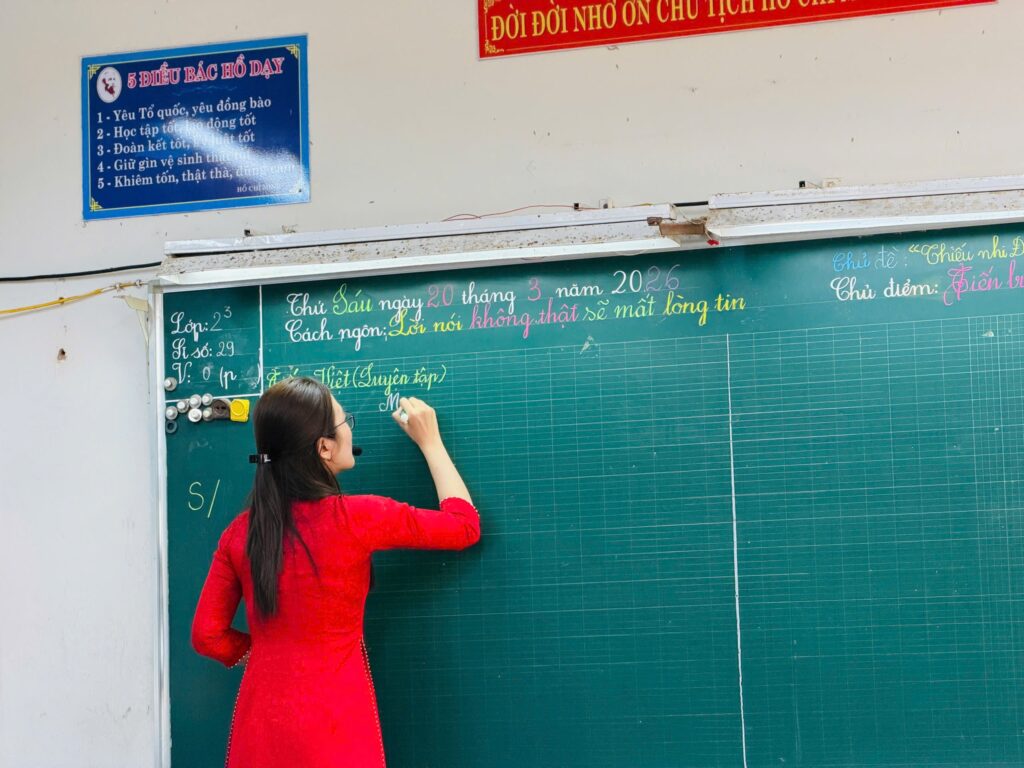 ĐỜI ĐỜI NHỚ ƠN CHỦ TỊCH HỒ CHÍ
5 ĐIỀU BÁC HỒ DẠY
1 - Yêu Tổ quốc, yêu đồng bào
2 - Học tập tốt, lao động tốt
3 - Đoàn kết tốt, kỷ luật tốt
4 - Giữ gìn vệ sinh thật
5 - Khiêm tốn, thật thà, dũng cảm
HỒ CHÍ MINH
Lớp: 2³
Sĩ số: 29
V: 0 (p
S/
Thứ Sáu ngày 20 tháng 3 năm 2026
Cách ngôn: Lời nói không thật sẽ mất lòng tin
Tiếng Việt (Luyện tập)
M
Chủ đề: "Thiếu nhi Đ
Chủ điểm: Tiến b